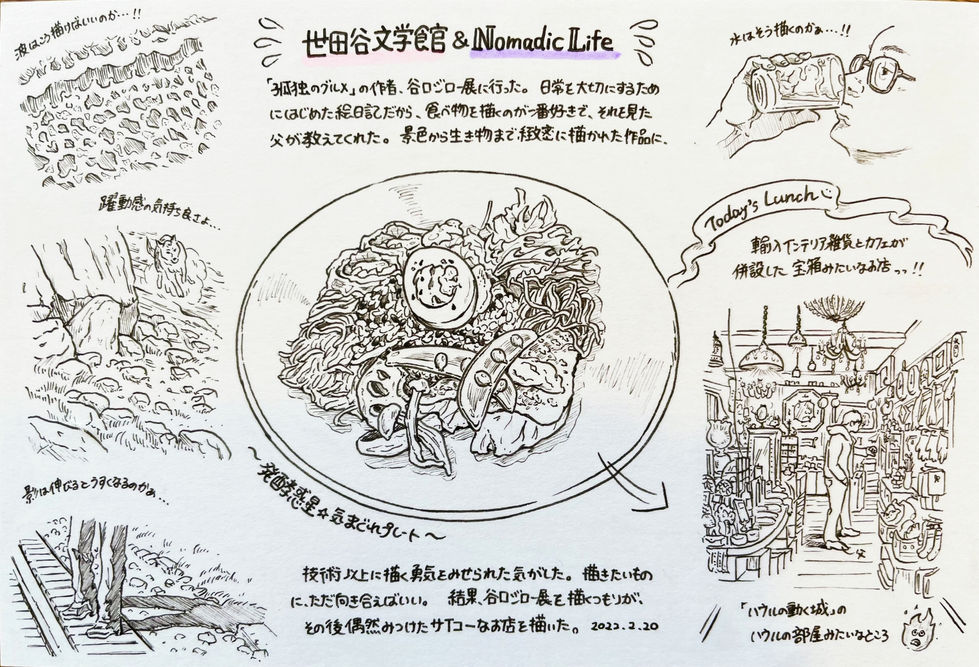 世田谷文学食館 & Nomadic Life
波はこう描けばいいのか…!!
「孤独のグルメ」の作者、谷口ジロー展に行った。日常を大切にするため
にはじめた絵日記だから、食べ物を描くのが一番好きで、それを見た
父が教えてくれた。景色から生き物まで緻密に描かれた作品に、
氷はそう描くのかぁ…!!
躍動感の気持ち良さよ…
Today's Lunch
輸入インテリア雑貨とカフェが
併設した宝箱みたいなお店っっ!!
影は伸びるとうすくなるのかぁ…
〜発酵惑星☆気まぐれプレート〜
父
技術以上に描く勇気をみせられた気がした。描きたいもの
に、ただ向き合えばいい。結果、谷口ジロー展を描くつもりが、
その後偶然みつけたサイコーなお店を描いた。2022.2.20
「ハウルの動く城」の
ハウルの部屋みたいなところ